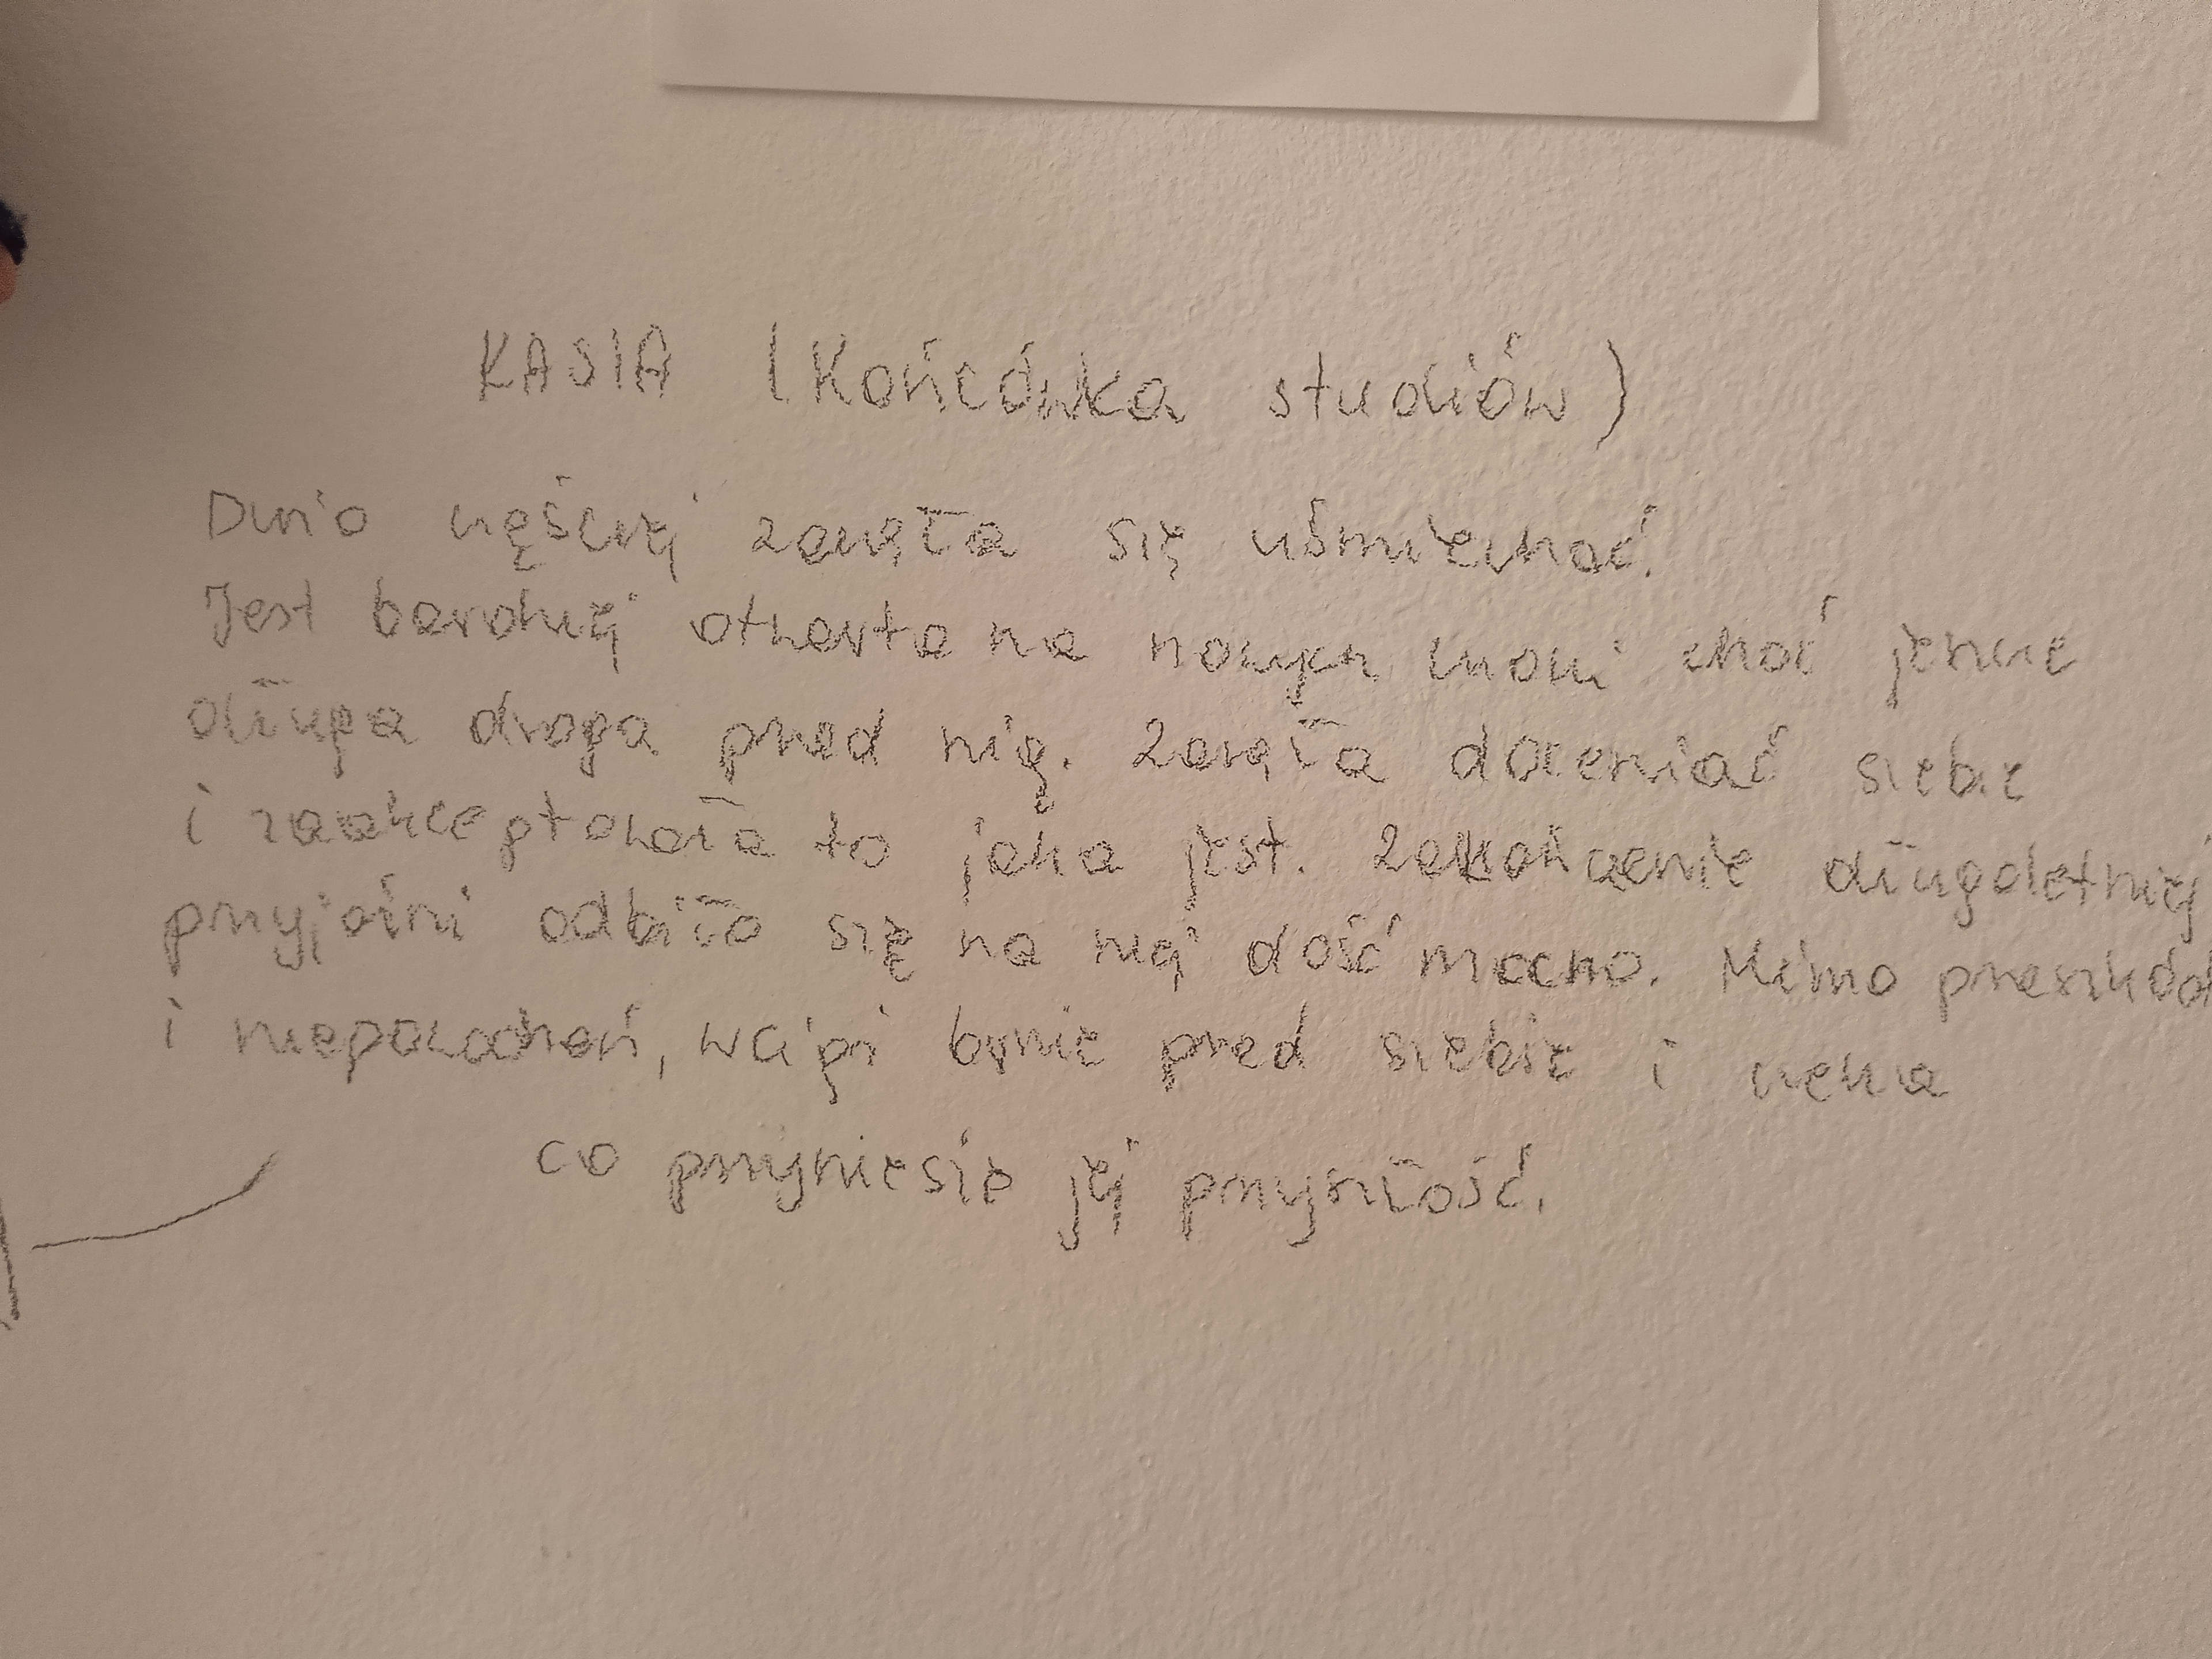 KASIA (Końcówka studiów)
Dużo częściej zaczęła się uśmiechać.
Jest bardziej otwarta na nowych ludzi choć jeszcze
długa droga przed nią. Zaczęła doceniać siebie
i zaakceptowała to jaka jest. Zakończenie długoletniej
przyjaźni odbiło się na niej dość mocno. Mimo przeszkód
i niepowodzeń, wciąż brnie przed siebie i czeka
co przyniesie jej przyszłość.